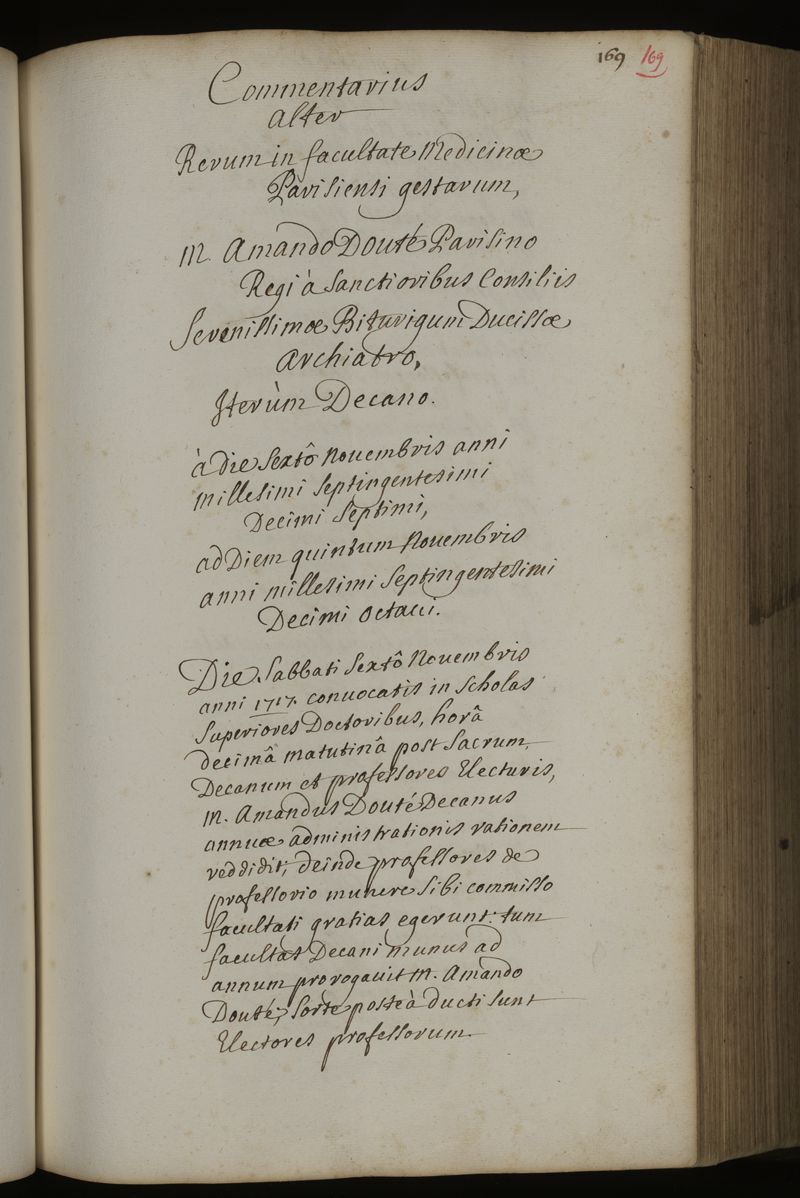 169 169
Commentarius
alter
Rerum in facultate Medicinæ
Parisiensi gestarum,
M. Amando Douté Parisino
Regi à Sanctioribus Consiliis
Serenissimæ Biturigum Ducissæ
Archiatro,
Iterùm Decano.
à die Sextô Nouembris anni
millesimi Septingentesimi
Decimi Septimi,
ad Diem quintum Nouembris
anni millesimi Septingentesimi
Decimi octaui.
Die Sabbati Sextô Nouembris
anni 1717. conuocatis in Scholas
Superiores Doctoribus, horâ
decimâ matutinâ post Sacrum,
Decanum et professores Electuris,
M. Amandus Douté Decanus
annuæ administrationis rationem
reddidit; deinde professores de
professorio munere Sibi commisso
facultati gratias egerunt: tum
facultas Decani munus ad
annum prorogauit M. Amando
Douté; Sorte posteà ducti sunt
Electores professorum.